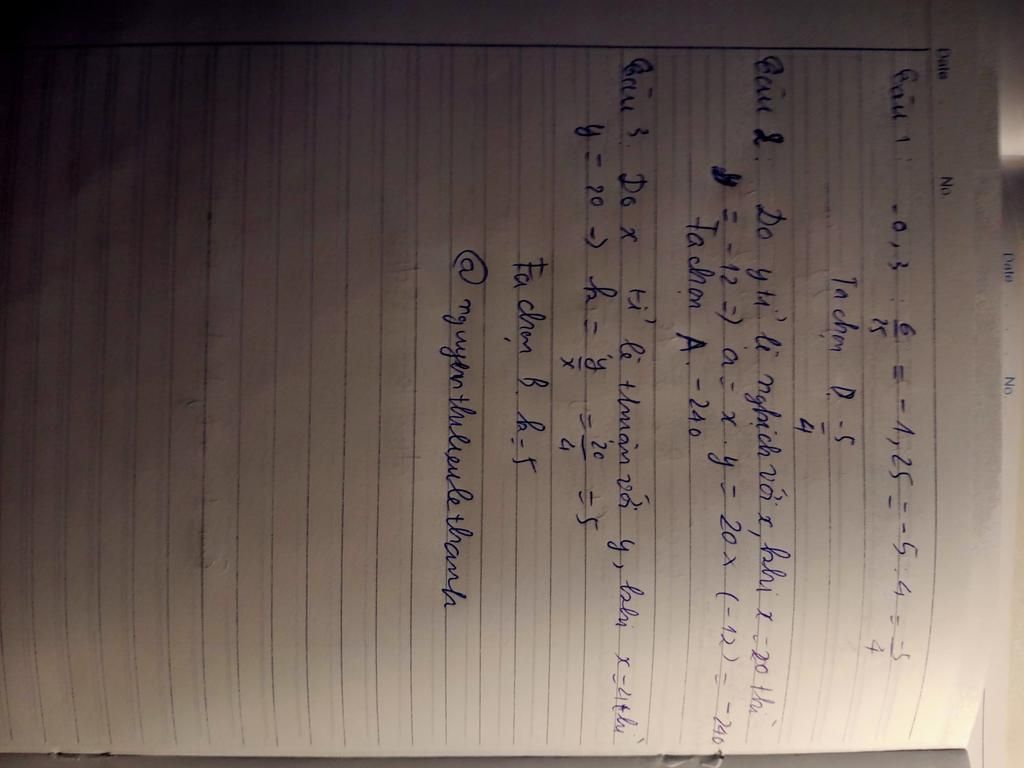 Date No.
Date No.
Câu 1: -0,3 : 6/25 = -1,25 = -5 : 4 = -5/4
Ta chọn D -5/4
Câu 2: Do y tỉ lệ nghịch với x, khi x = 20 thì
y = -12 => a = x . y = 20 x (-12) = -240
Ta chọn A. -240
Câu 3. Do x tỉ lệ thuận với y, khi x = 4 thì
y = 20 => k = y/x = 20/4 = 5
Ta chọn B. k = 5